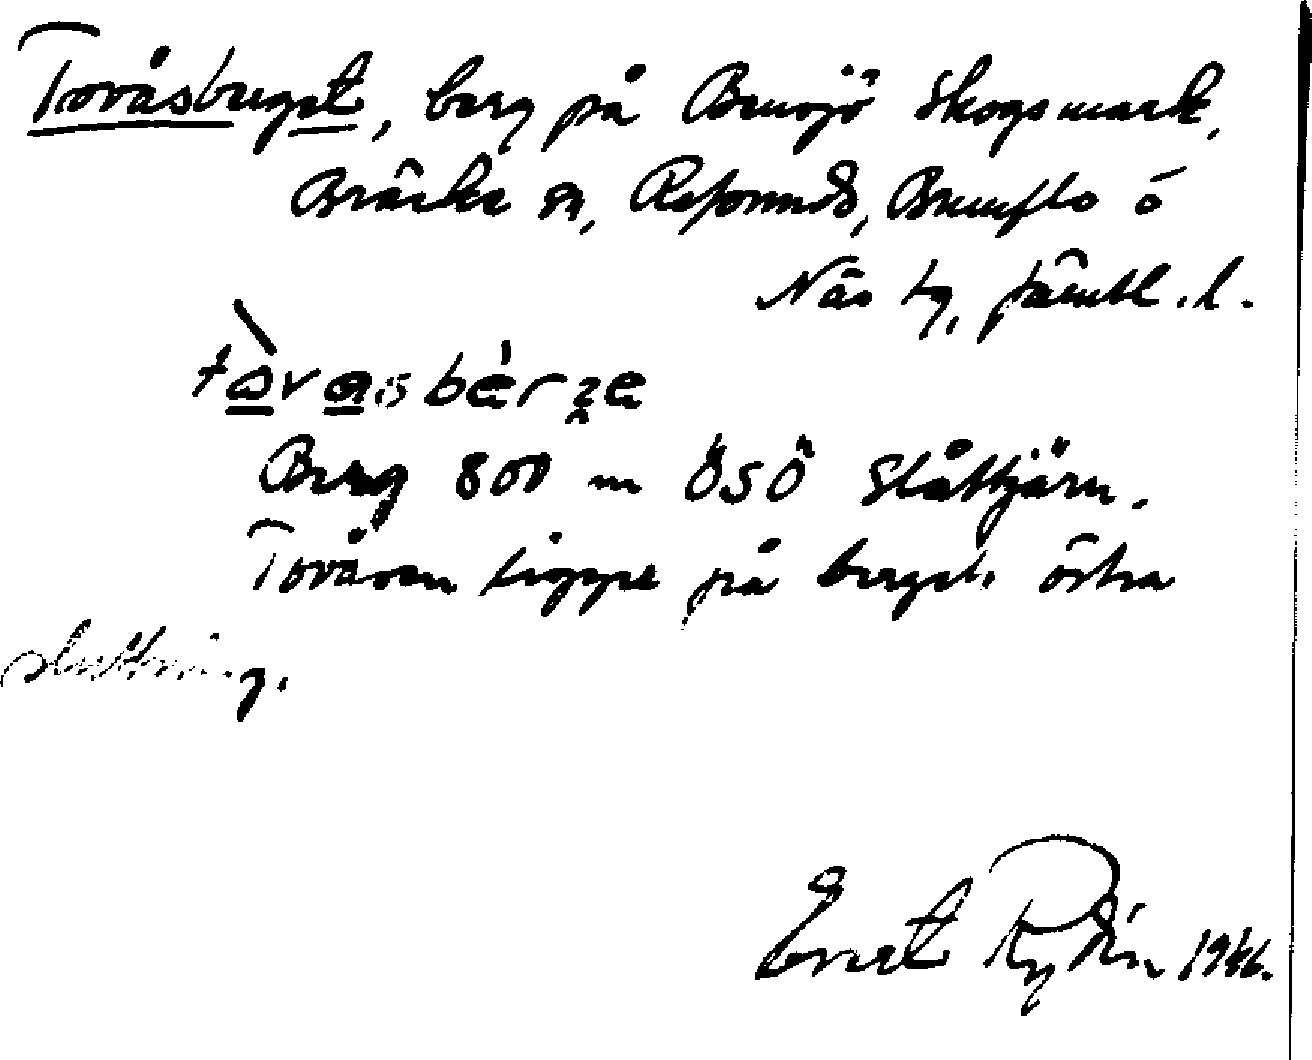 Tovåsberget, berg på Bensjö skogsmark,
Bräcke sn, Refsunds, Brunflo o
Näs tg, Jämtl. l.
Berg 800 m ÖSÖ Slåttjärn.
Tovåsen ligger på bergets östra
sluttning.
Ernst Rydén 1946.